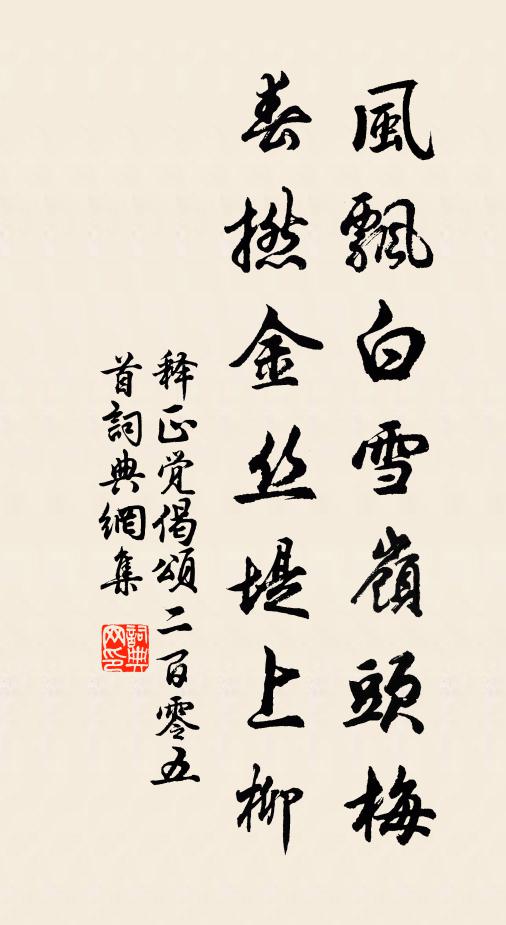 風飄白雪嶺頭梅
春撚金丝堤上柳
释正觉偈頌二百零五
首詞典網集
詞典网印